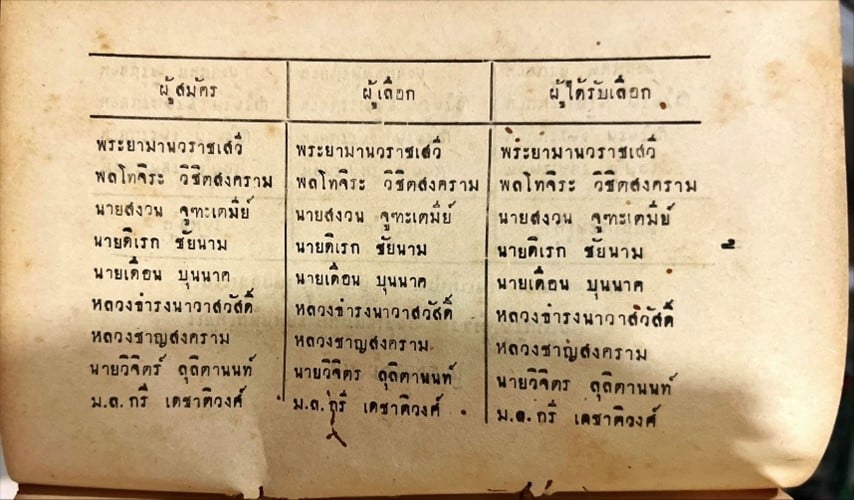 ผู้สมัคร ผู้เลือก ผู้ได้รับเลือก
พระยามานวราชเสวี พระยามานวราชเสวี พระยามานวราชเสวี
พลโทจิระ วิชิตสงคราม พลโทจิระ วิชิตสงคราม พลโทจิระ วิชิตสงคราม
นายสงวน จูฑะเตมีย์ นายสงวน จูฑะเตมีย์ นายสงวน จูฑะเตมีย์
นายดิเรก ชัยนาม นายดิเรก ชัยนาม นายดิเรก ชัยนาม
นายเดือน บุนนาค นายเดือน บุนนาค นายเดือน บุนนาค
หลวงธำรงนาวาสวัสดิ์ หลวงธำรงนาวาสวัสดิ์ หลวงธำรงนาวาสวัสดิ์
หลวงชาญสงคราม หลวงชาญสงคราม หลวงชาญสงคราม
นายวิจิตร์ ลุลิตานนท์ นายวิจิตร ลุลิตานนท์ นายวิจิตร ลุลิตานนท์
ม.ล.กรี เดชาติวงศ์ ม.ล.กรี เดชาติวงศ์ ม.ล.กรี เดชาติวงศ์